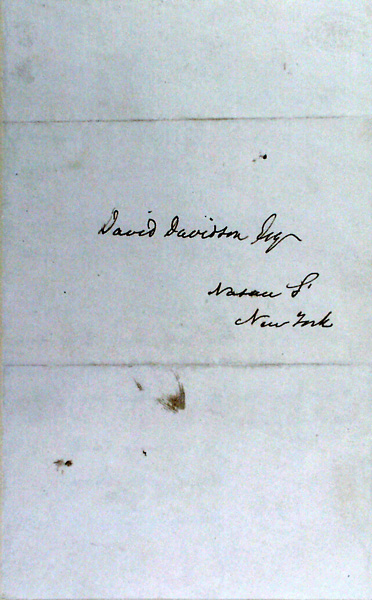 David Davidson Esq
Nasau St
New York